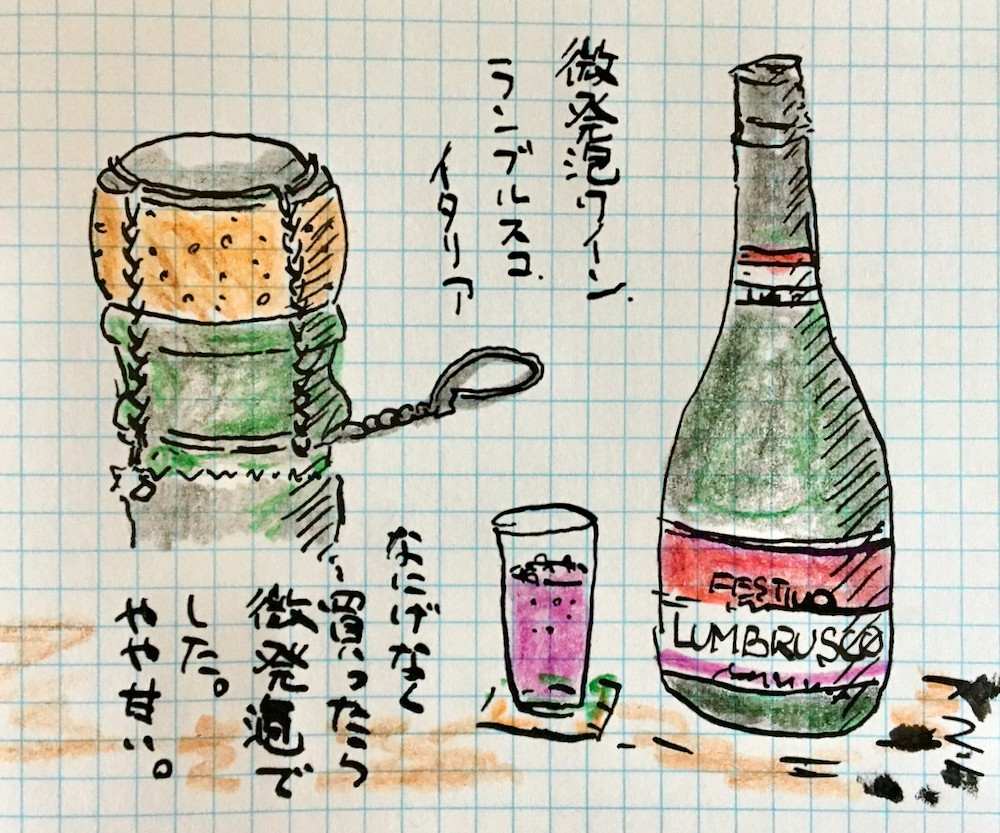 微発泡ワイン
ランブルスコ
イタリア
FESTIVO
LUMBRUSCO
なにげなく
買ったら
微発泡で
した。
やや甘い。